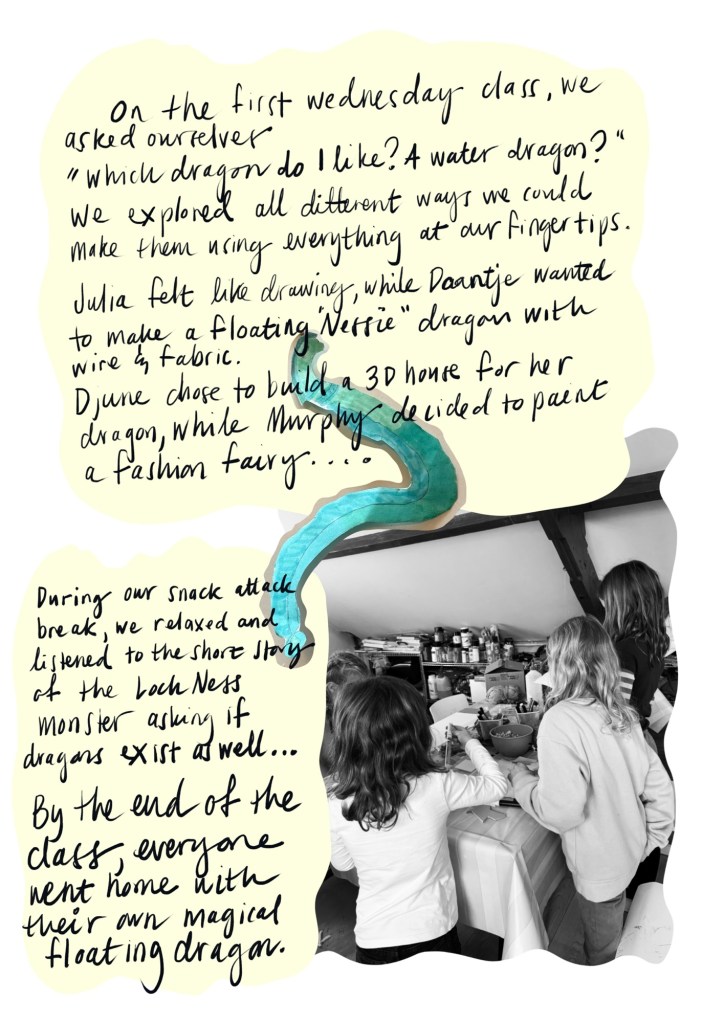 On the first wednesday class, we
asked ourselves
"which dragon do I like? A water dragon?"
We explored all different ways we could
make them using everything at our fingertips.
Julia felt like drawing, while Daantje wanted
to make a floating "Nessie" dragon with
wire & fabric.
Djune chose to build a 3D house for her
dragon, while Murphy decided to paint
a fashion fairy....
During our snack attack
break, we relaxed and
listened to the short story
of the Loch Ness
monster asking if
dragons exist as well...
By the end of the
class, everyone
went home with
their own magical
floating dragon.